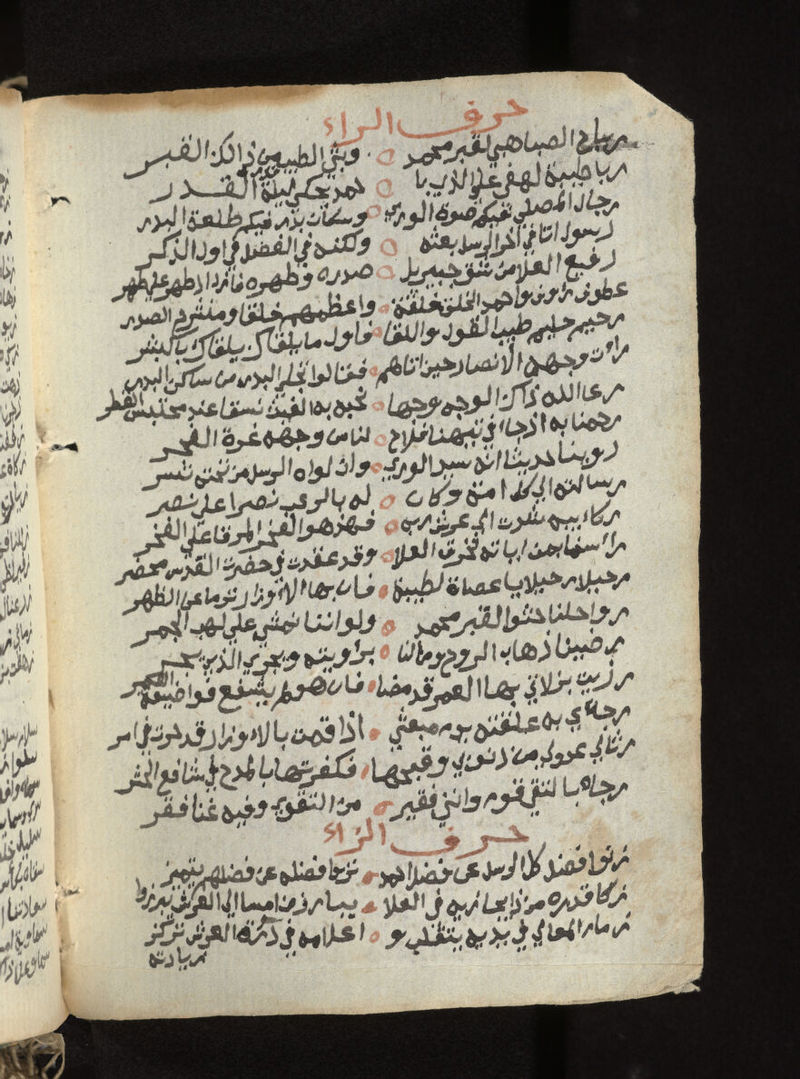 حرف الراء
رياح الصبا هبي لقبر محمد وبثي الطيب من ذالك القبر
ربا طيبة لهفي علي الذي با لمد يحكي ليلة القدر
رجال المصلي فيكم صوة الوري وسكان بدر فيكم طلعة البدر
رسول اتا في اخر الرسل بعثه ولكنه في الفضل في اول الذكر
رفيع العلا من شق جبريل صدره وطهره فازداد طهر علي طهر
عطوف رؤف واحمد الخلق خلقة واعظمهم خلقا ومنشرح الصدر
رحيم حليم طيب القول واللقا فاول ما يلقاك يلقاك بالبشر
رات وجهه الانصار حين اتاهم فقالوا تجلي البدر من ساكن البدر
رعا الله ذاك الوجه وجها نحبه به الغيث نسقا عند محتبس القطر
رحمنا به اذ جا في تيهنا فلاح لناس وجهه غرة الفجر
روينا حديثا انه سيد الوري وان لواه الرسل من تحته تسر
رسالته الي كل امة وكان له بالرعب نصرا علي نصر
ركاييه شدت الي عرش ربه فهذهو الفخر المرقا علي الفخر
راسنا من اياته تخرق العلا وقد عقدت في حضرت القدس محضر
رحيلا رحيلا يا عصاة لطيبة فان بها الاوزار ترما عن الظهر
رواحلنا حثوا لقبر محمد ولو اننا نمشي علي لهب الجمر
رضينا ذهاب الروح ومالنا برؤيته ويجري الذي يجر
رزيت بزلاتي بها العمر قد مضا فان هو لم يشفع فواضيعة العمر
رجائ به علقته يوم مبعثي اذا قمت بالاوزار قد حرت في امر
رثا لي عدولي من ذنوبي وقبحها فكفرتها بالمدح في شافع الحشر
رجا بالتقي قوم وانني فقير من التقوي وفيه غنا فقر
حرف الزاء
زنوا فضل كل الرسل عن فضل احمد تروا فضله عن فضلهم يتميز
زكا قدره من ذا يجاريه في العلا يبارز من امسا الي العرش يبرزوا
زمام المعالي في يديه يتقلب و اعلامه في ذكرة العرش تركز
زيادته